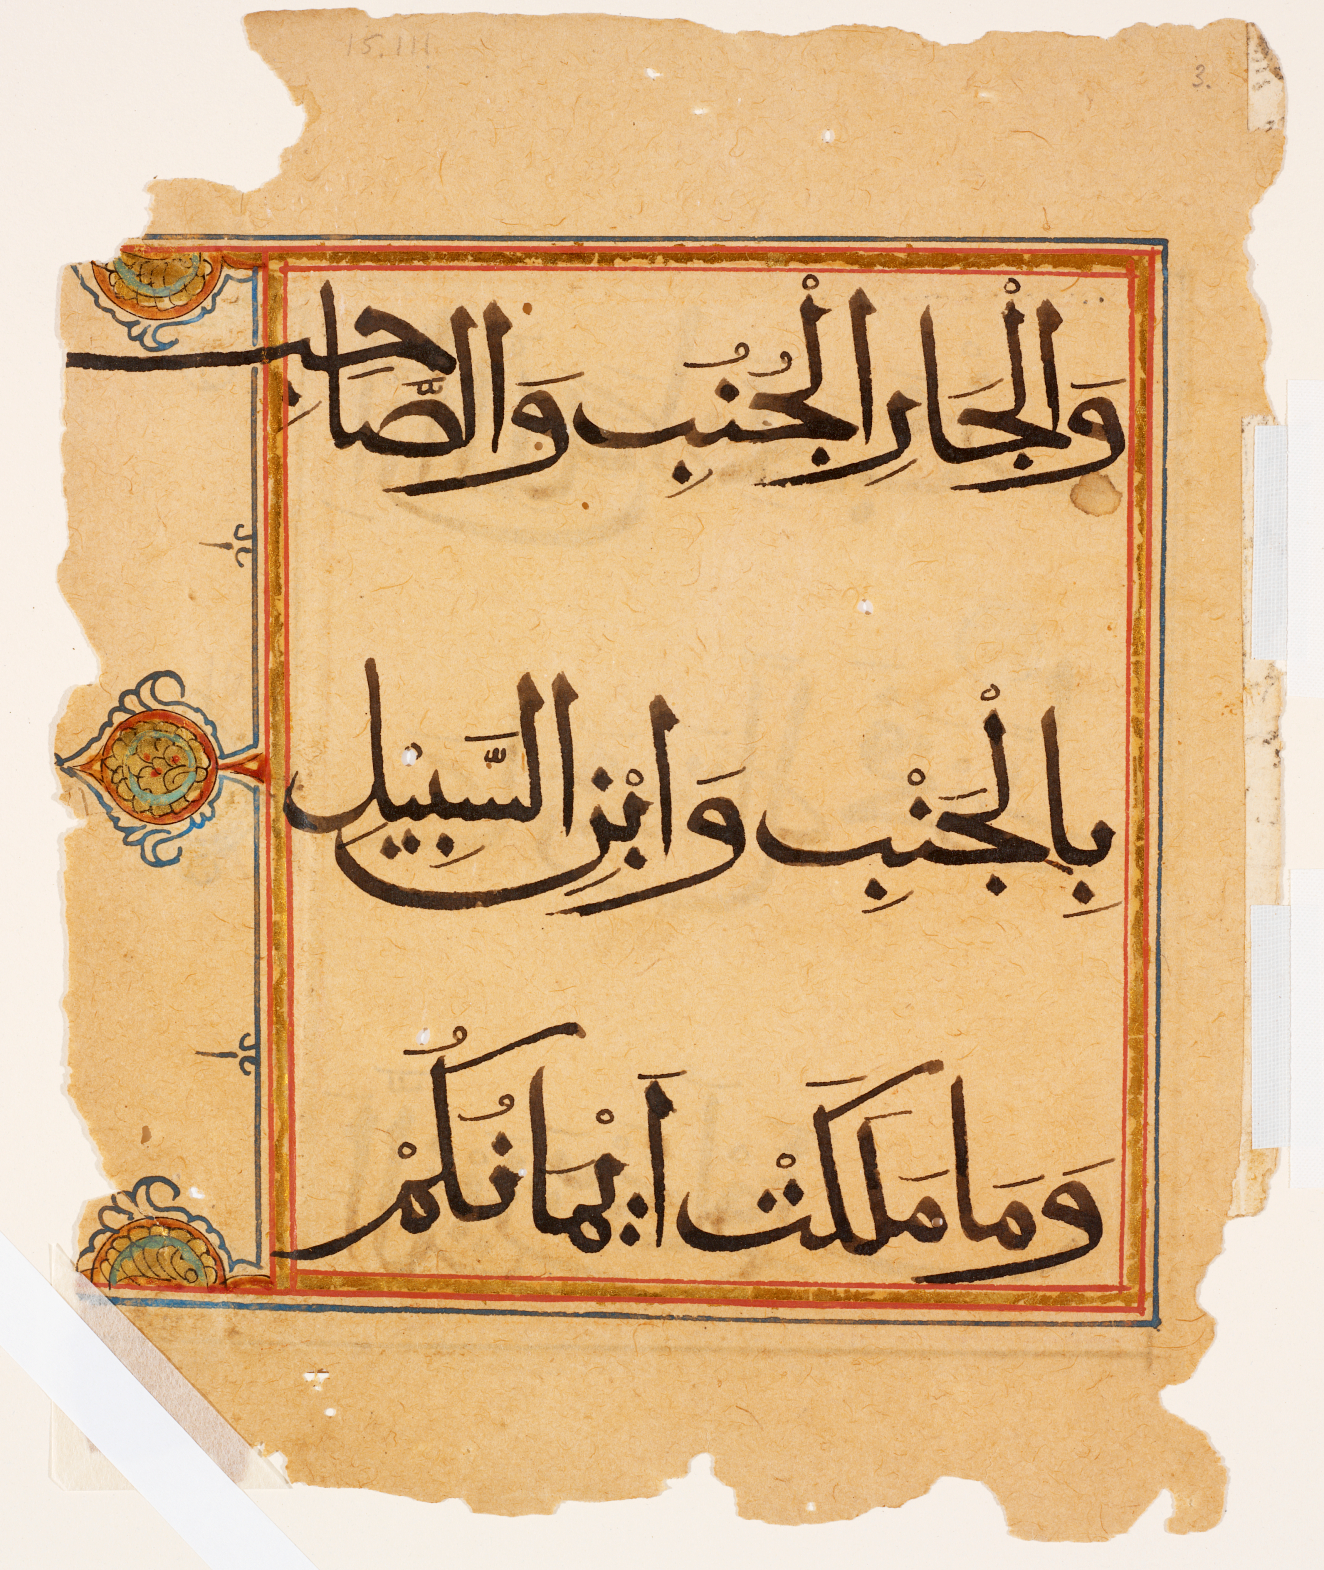 15.III
3.
وَالْجَارِ الْجُنُبِ وَالصَّاحِبِ
بِالْجَنْبِ وَابْنِ السَّبِيلِ
وَمَا مَلَكَتْ أَيْمَانُكُمْ